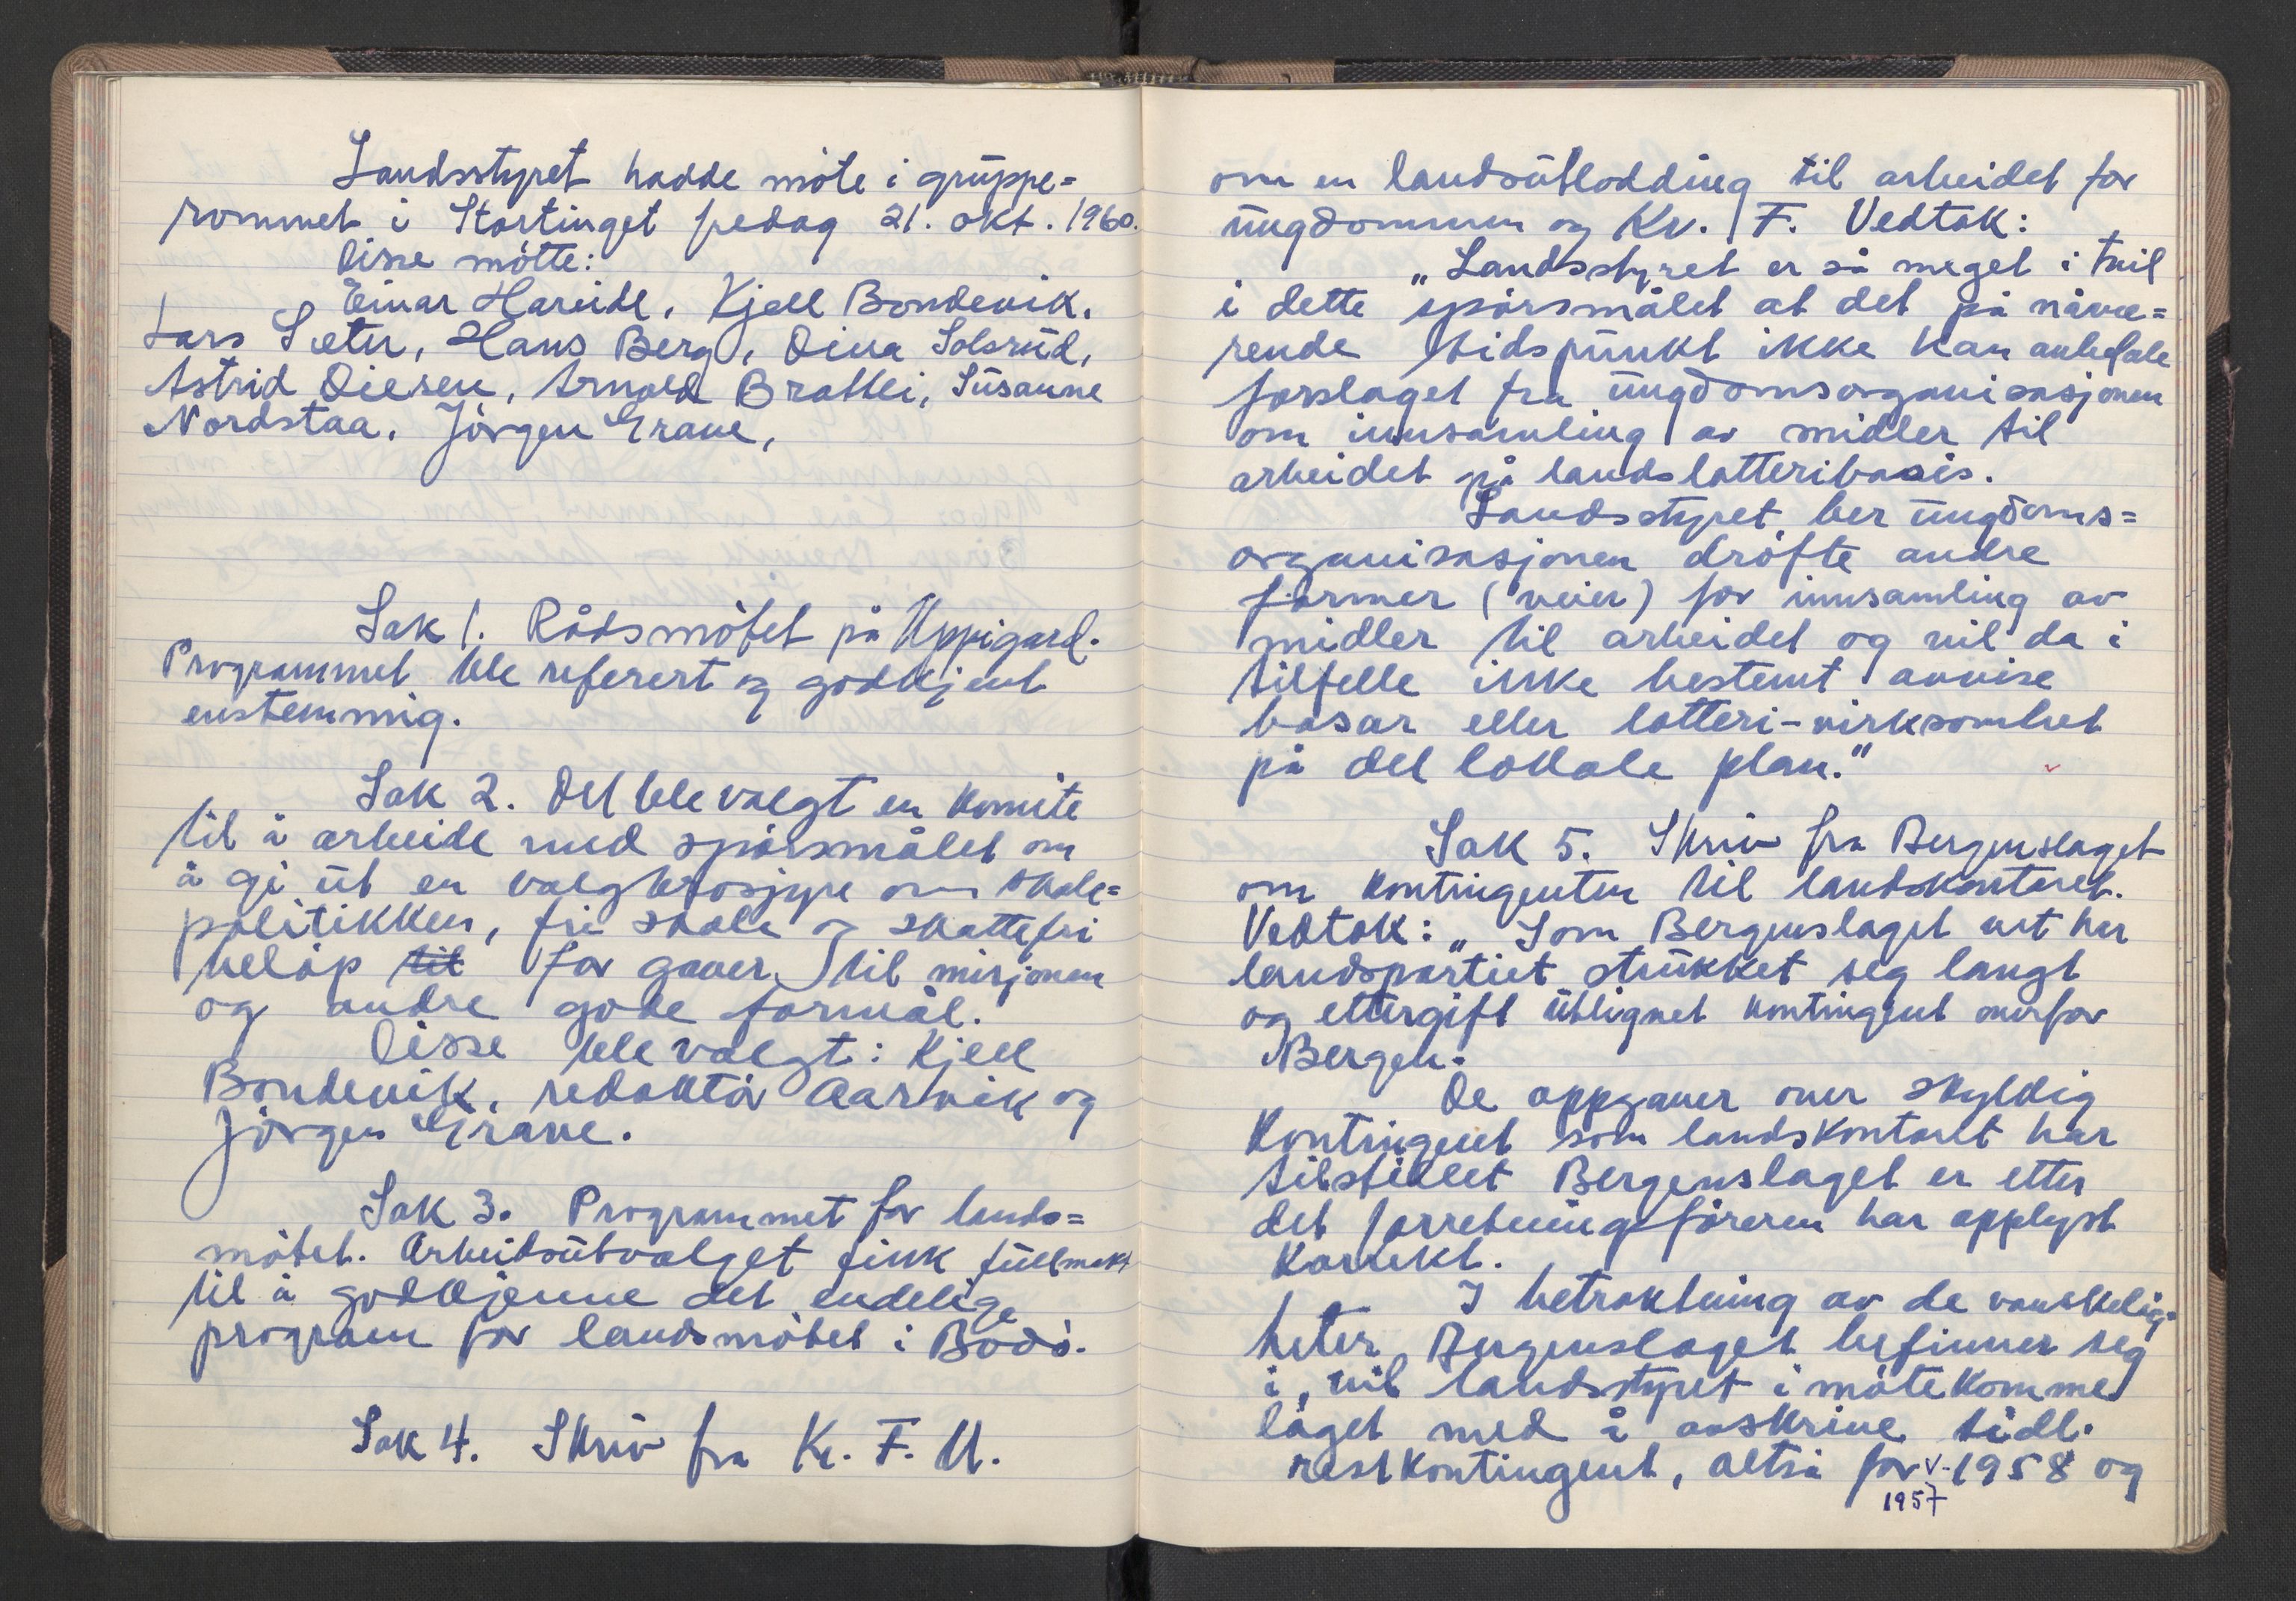 Landsstyret hadde möte i gruppe=
rommet i Stortinget fredag 21. okt. 1960.
Disse mötte:
Einar Hareide, Kjell Bondevik,
Lars Sæter, Hans Berg, Dina Solsrud,
Astrid Diesen, Arnold Brattli, Susanne
Nordstaa, Jörgen Grave,
Sak 1. Rådsmötet på Uppigard.
Programmet ble referert og godkjent
enstemmig.
Sak 2. Det ble valgt en komite
til å arbeide med spörsmålet om
å gi ut en valgbrosjyre om skole=
politikken, fri skole og skattefri
belöp til for gaver til misjonen
og andre gode formål.
Disse ble valgt: Kjell
Bondevik, redaktör Aarvik og
Jörgen Grave.
Sak 3. Programmet for lands=
mötet. Arbeidsutvalget fikk fullmakt
til å godkjenne det endelige
program for landsmötet i Bodö.
Sak 4. Skriv fra Kr. F. U.
om en landsutlodding til arbeidet for
ungdommen og Kr. F. Vedtok:
„Landsstyret er så meget i tvil
i dette spörsmålet at det på nåvæ=
rende tidspunkt ikke kan anbefale
forslaget fra ungdomsorganisasjonen
om innsamling av midler til
arbeidet på landslotteribasis.
Landsstyret ber ungdoms=
organisasjonen dröfte andre
former (veier) for innsamling av
midler til arbeidet og vil da i
tilfelle ikke bestemt avvise
basar eller lotteri-virksomhet
på det lokale plan."
Sak 5. Skriv fra Bergenslaget
om kontingenten til landskontoret.
Vedtok: „Som Bergenslaget vet har
landspartiet strukket seg langt
og ettergitt utlignet kontingent overfor
Bergen.
De oppgaver over skyldig
kontingent som landskontoret har
tilstillet Bergenslaget er etter
det forretningsföreren har opplyst
korrekt.
I betraktning av de vanskelig-
heter Bergenslaget befinner seg
i, vil landsstyret i mötekomme
laget med å avskrive tidl.
restkontingent, altså for v 1958 og
1957